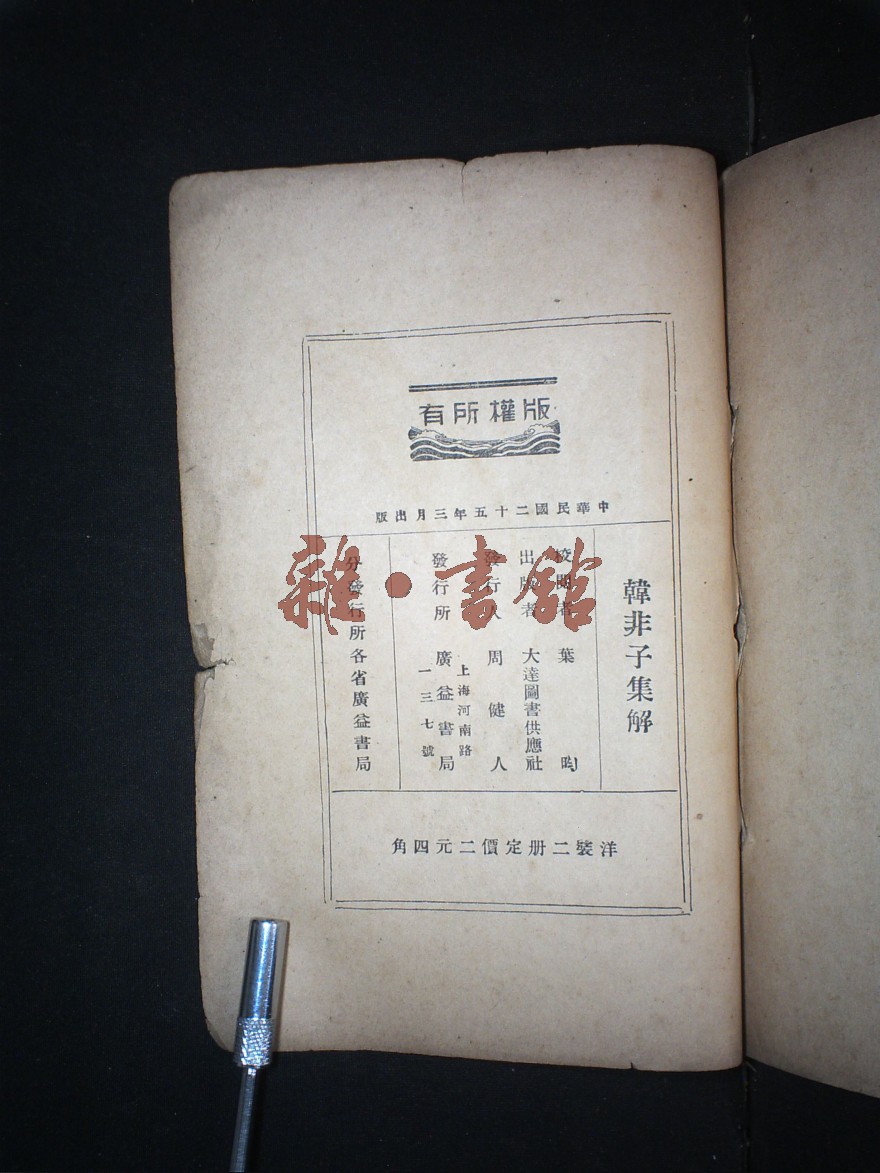 版權所有
中華民國二十五年三月出版
韓非子集解
校閱者 葉昀
出版者 大達圖書供應社
發行人 周健人
上海河南路
發行所 廣益書局
一三七號
分發行所各省廣益書局
洋裝二册定價二元四角
雜·書館